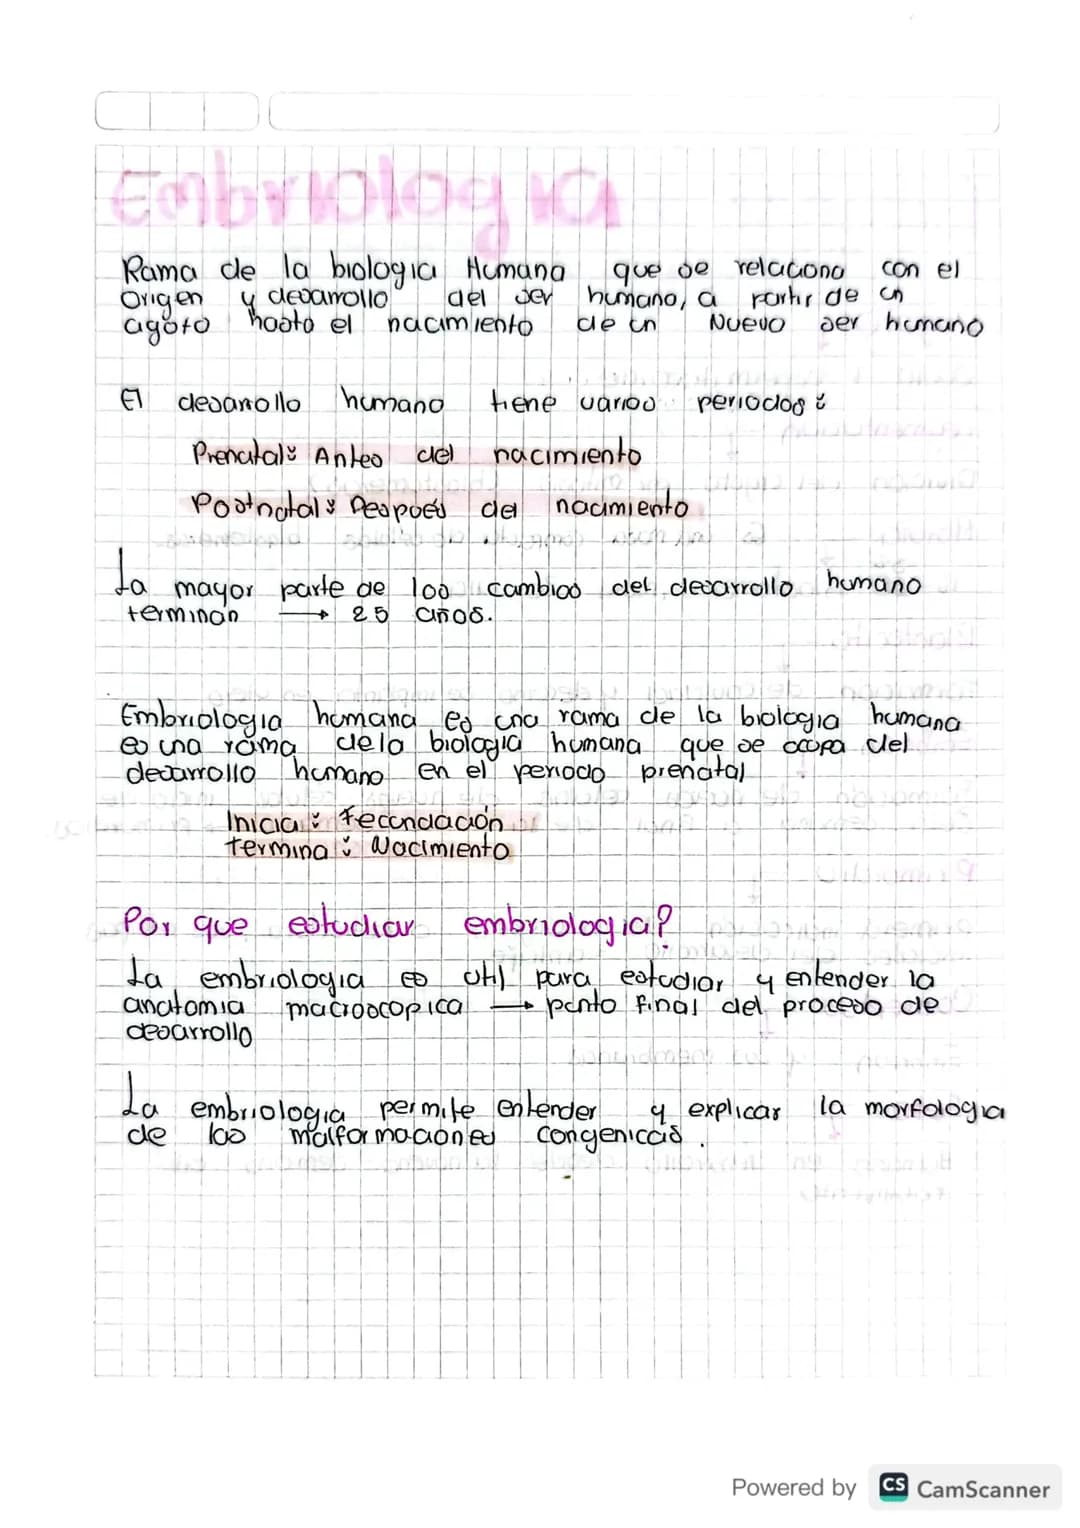 Embriologia
Rama de la biologia Humana que se relaciona con el
Origen y desarrollo del ser humano, a partir de un
agoto hasta el nacimiento de un Nuevo ser humano
El desarrollo humano tiene varios periodos:
Prenatal: Antes del nacimiento
Postnatal: Después del nacimiento
La mayor parte de los cambios del desarrollo humano
terminan → 25 años.
Embriologia humana es una rama de la biologia humana
es una rama de la biologia humana que se ocupa del
desarrollo humano en el periodo prenatal
Inicia: Fecundación
termina: Nacimiento
Por que estudiar embriologia?
La embriologia es util para estudiar y entender la
anatomia macroscopica → punto final del proceso de
desarrollo
La embriologia permite entender y explicar la morfologia
de las malformaciones congenicas.
Powered by CS CamScanner